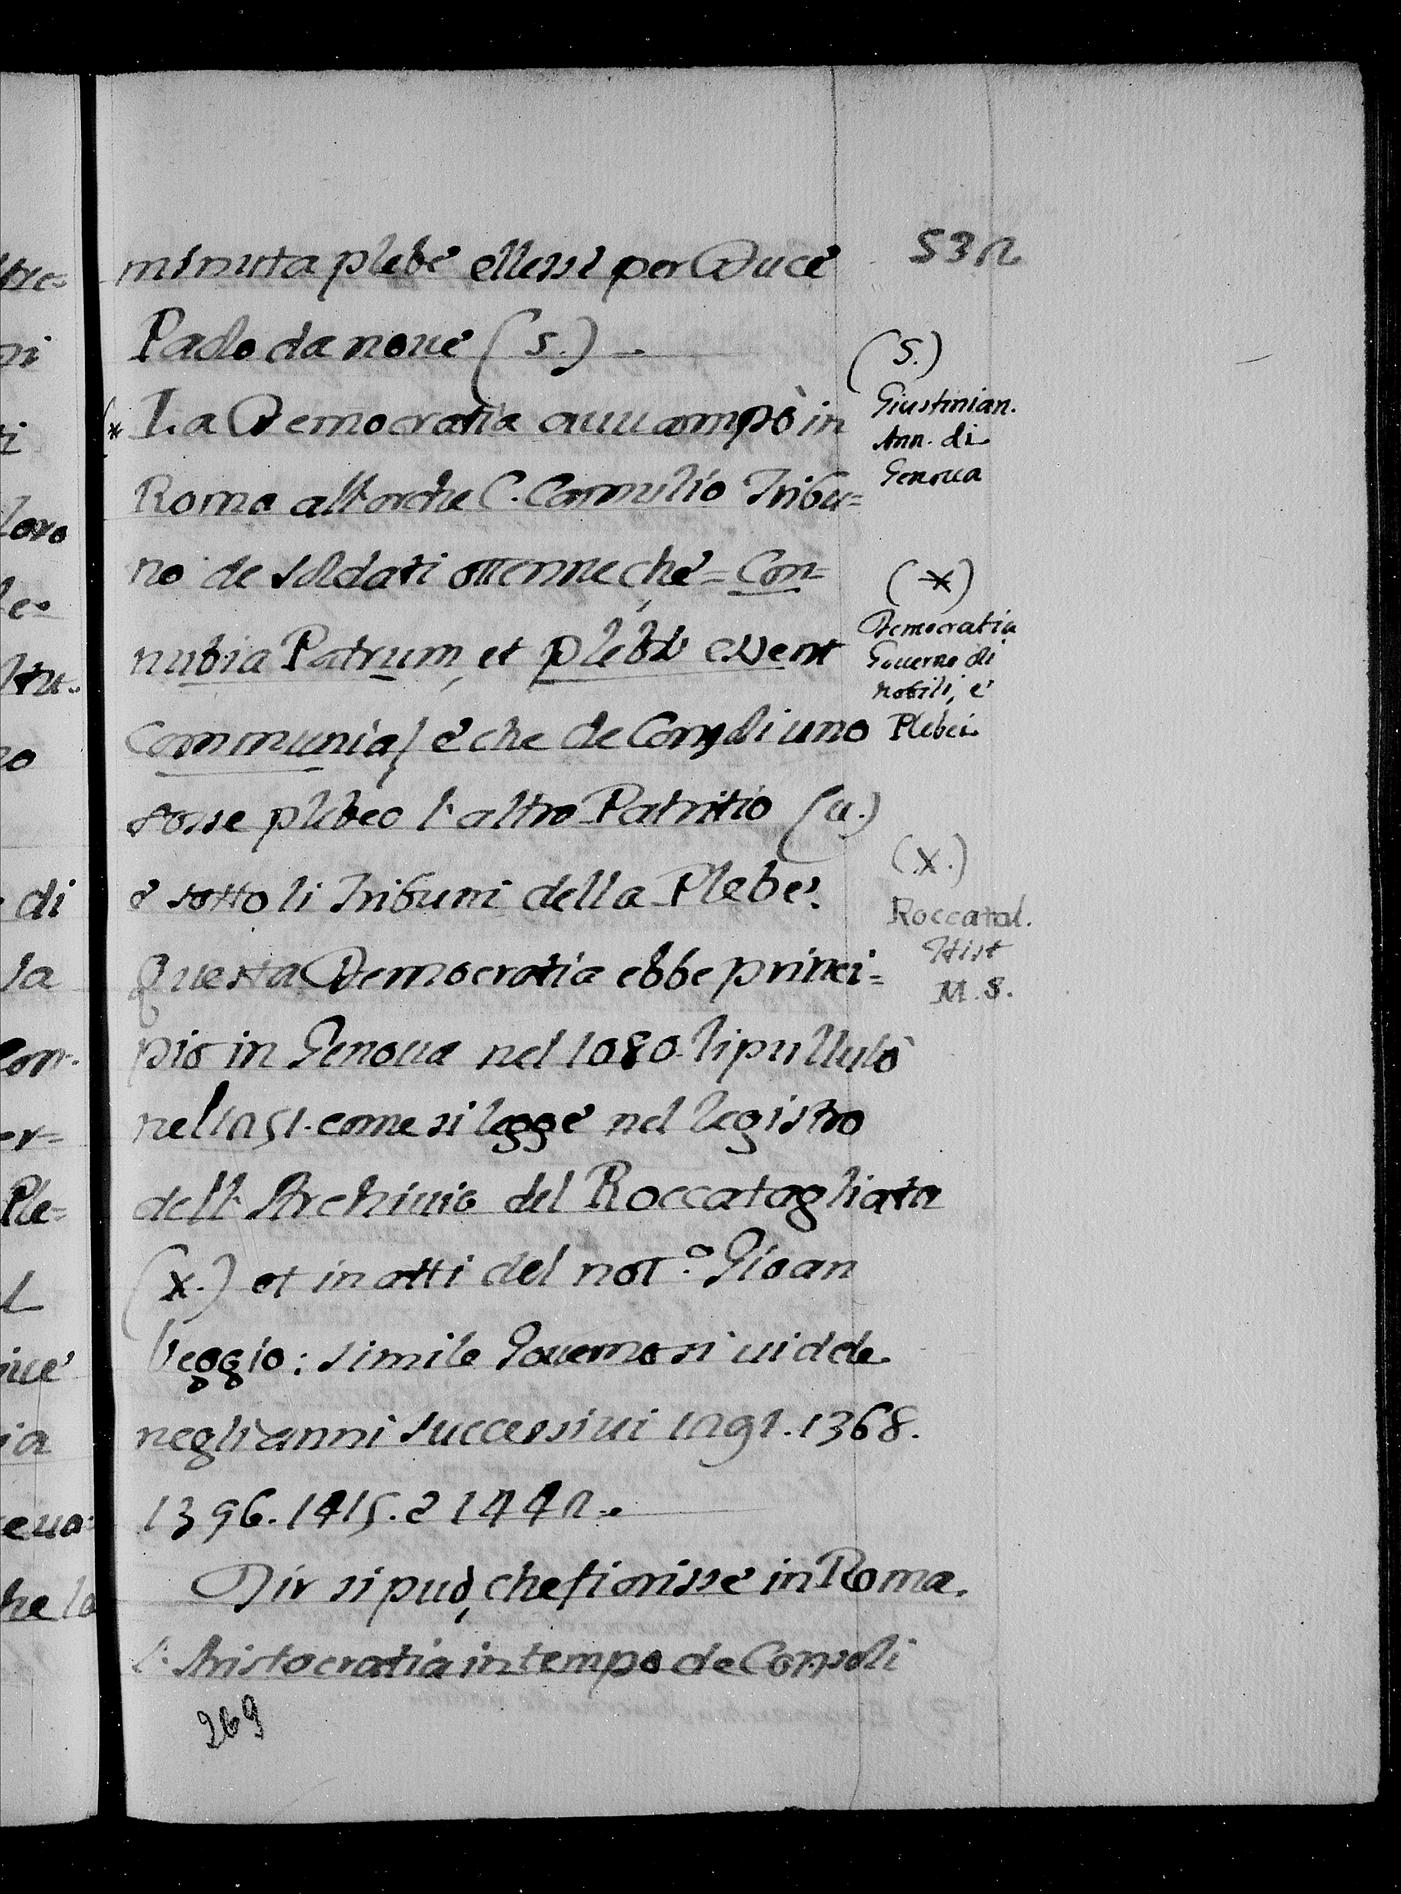 532
minuta plebe elesse per Duce
Paolo da noue (s.)
(* La Democratia auuampò in
Roma all'orche C. Canulio Tribu=
no de soldati ottenne, che = Con=
nubia Patrum, et plebi essent
Communia; e che de Consoli uno
fosse plebeo l'altro Patritio (u.)
e sotto li Tribuni della Plebe.
Questa Democratia ebbe princi=
pio in Genoua nel 1080. ripullulò
nel 1251. come si legge nel registro
dell'Archiuio del Roccatagliata
(x.) et in atti del not.o Gioan
Veggio: simile Gouerno si uidde
negli anni successiui 1291. 1368.
1396. 1415. e 1442.
Dir si può, che fiorisse in Roma
l'Aristocratia in tempo de Consoli
269
(s.)
Giustinian.
Ann. di
Genoua
(*)
Democratia
Gouerno di
nobili, e
Plebei
(x.)
Roccatal.
Hist
M.S.
di
la
Ple=
loro